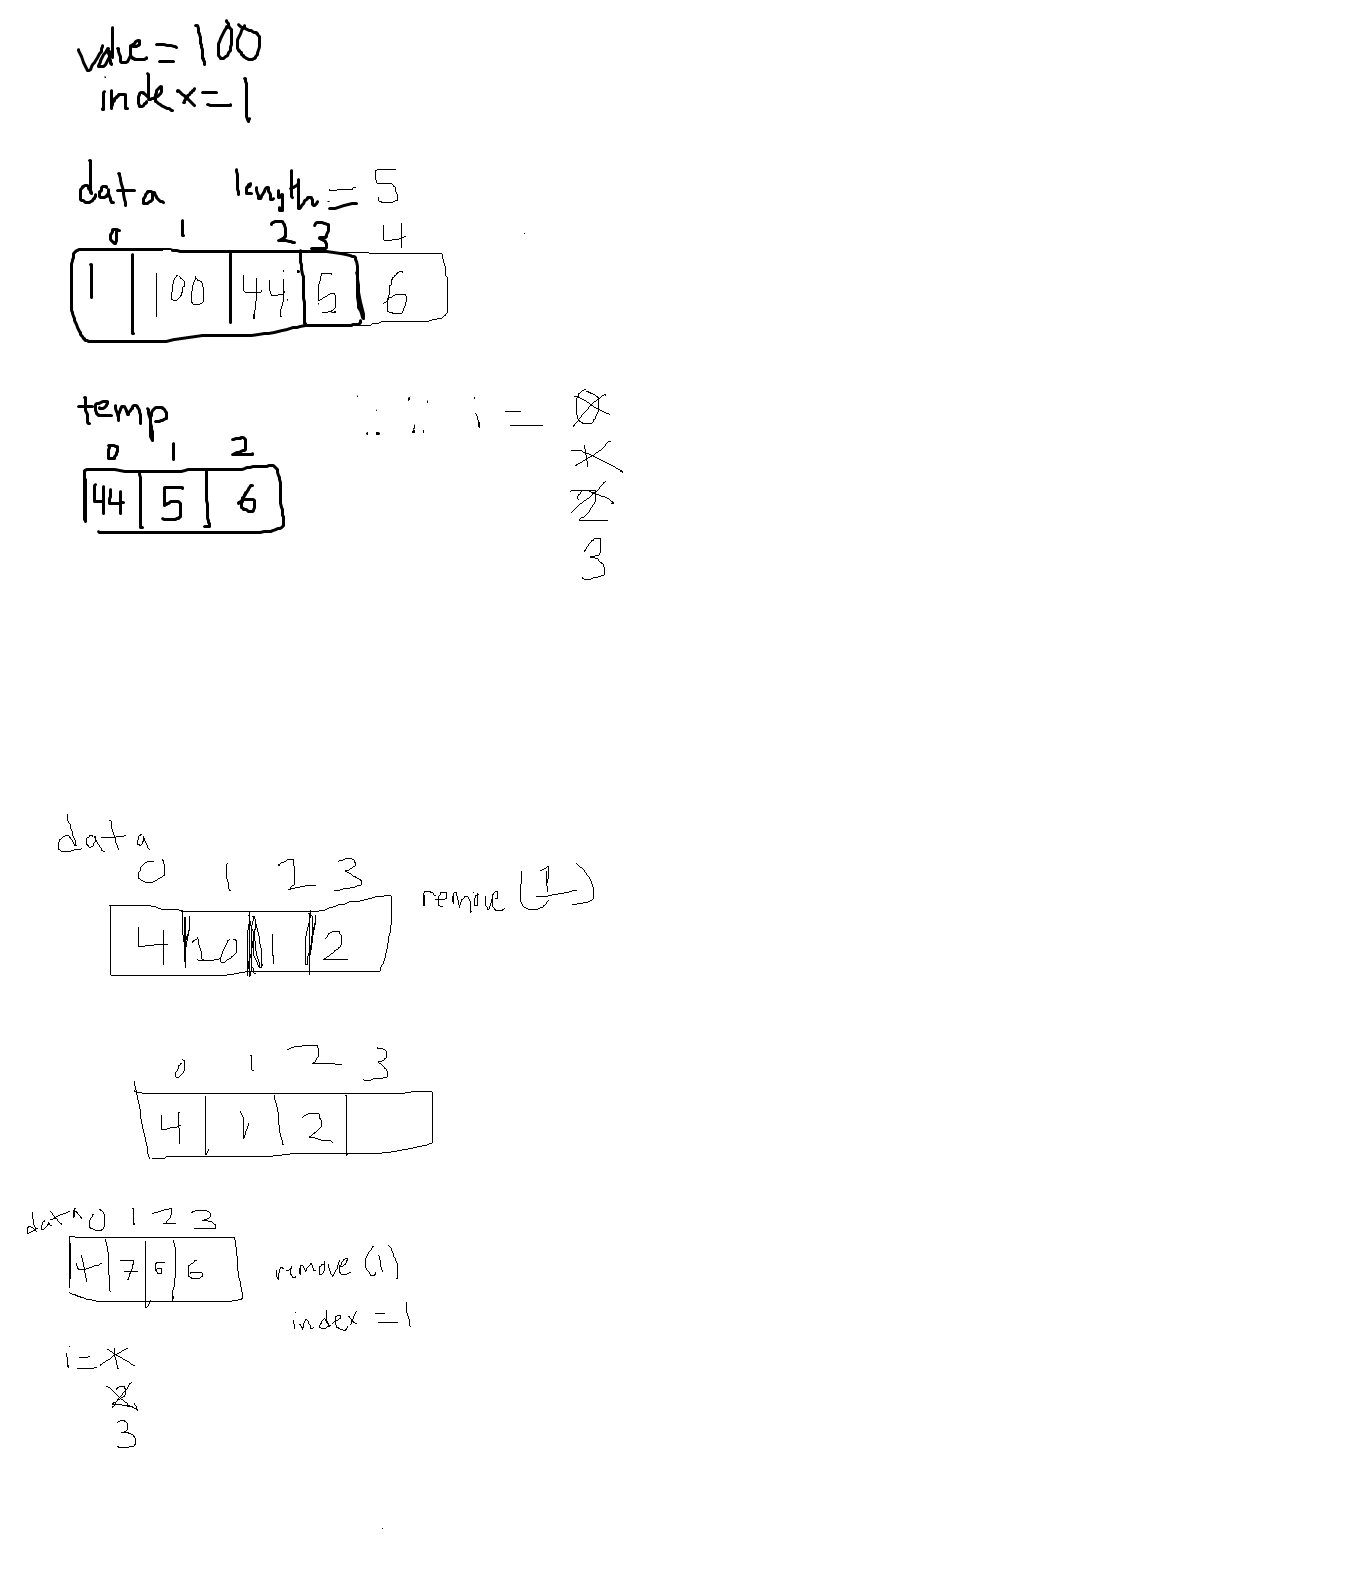 value=100
index=1
data length=5
0 1 2 3 4
1 100 44 5 6
temp i=0
0 1 2 1
44 5 6 2
3
data
0 1 2 3 remove(1)
4 10 1 2
0 1 2 3
4 1 2
data 0 1 2 3
4 7 6 6 remove(1)
index=1
i=1
2
3